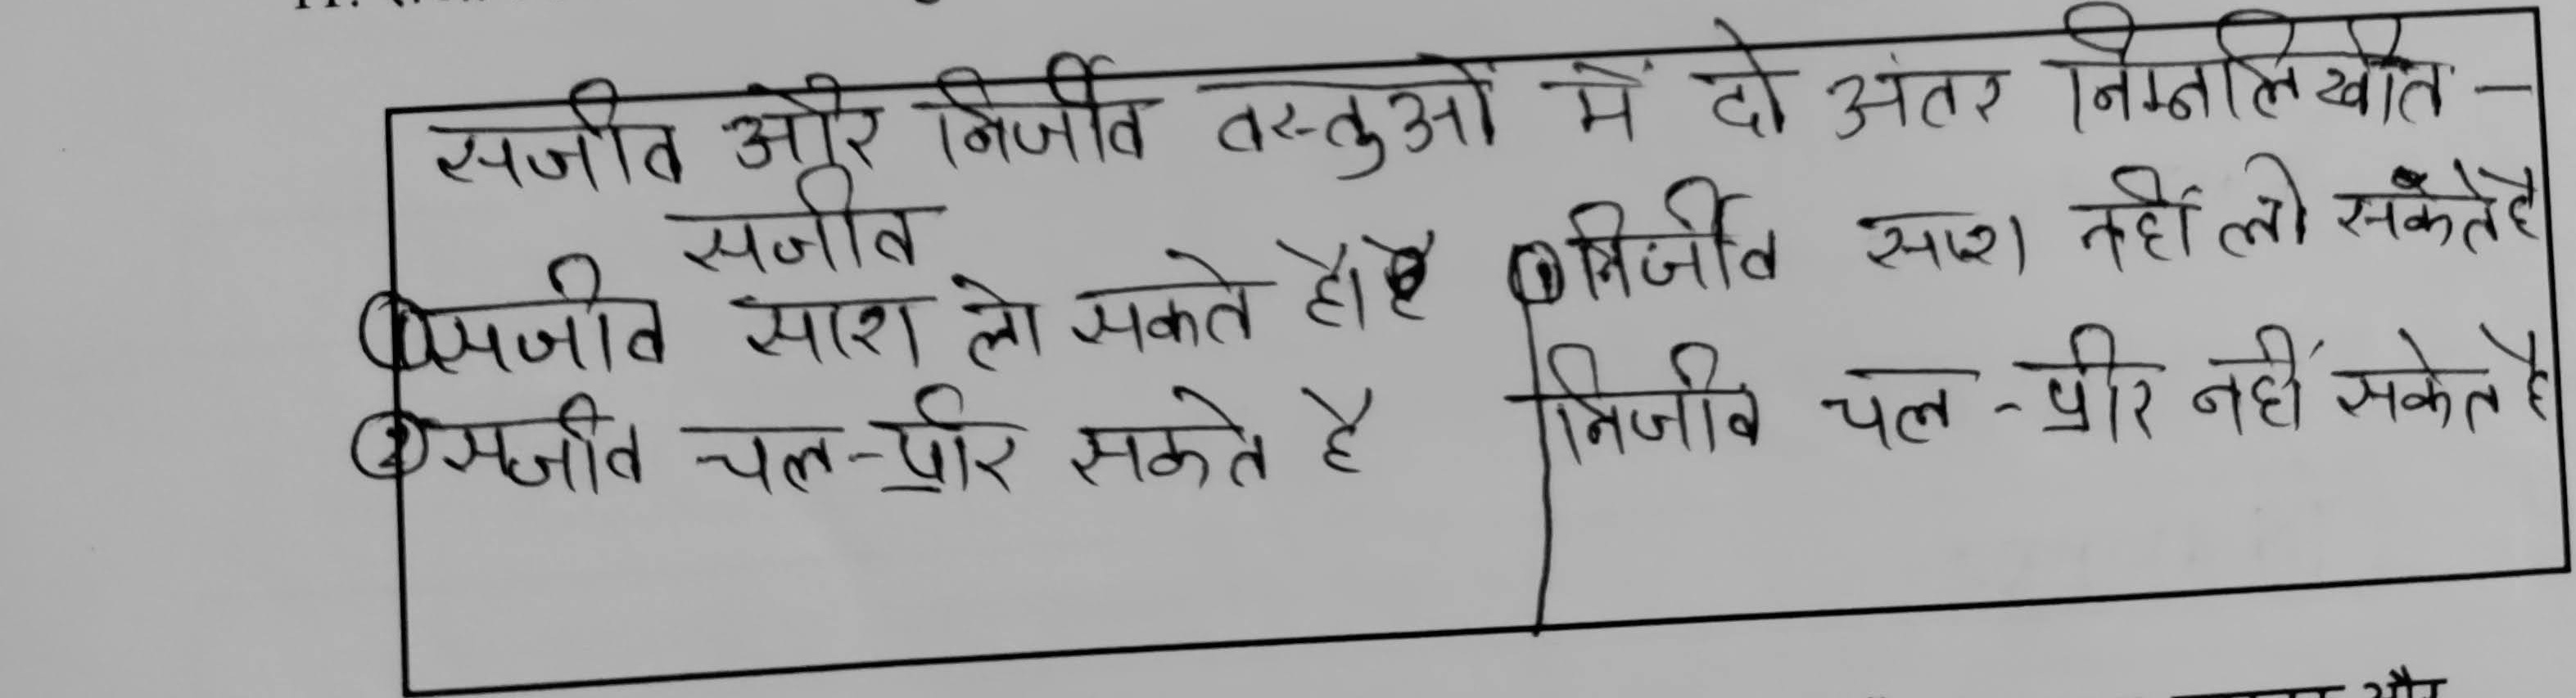 सजीव और निर्जीव वस्तुओं में दो अंतर निम्नलिखीत -
सजीव
① सजीव सारा लो सकते है
② सजीव चल-फीर सकते है
① निर्जीव सारा नहीं लो सकते है
निजीव चल-फीर नहीं सकेत है
और